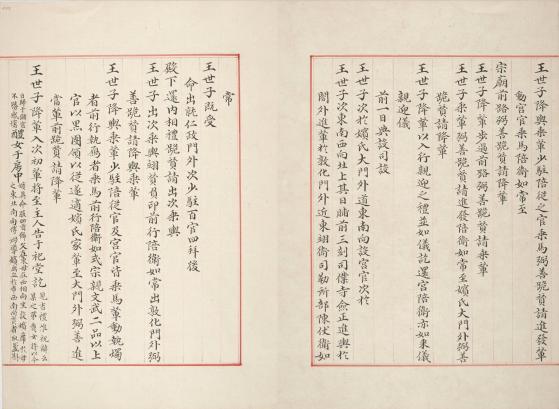 王世子降輿乘輦少駐陪從之官及宮官皆乘馬輦
動宮官乘馬陪衛如常至
宗廟前路弼善跪贊請降輦
王世子降輦步過前路弼善跪贊請乘輦
王世子乘輦弼善跪贊請進發陪衛如常至嬪氏大門外弼善
跪贊請降輦
王世子降輦以入行親迎之禮並如儀訖還宮陪衛亦如來儀
親迎儀
前一日典設司設
王世子次於嬪氏大門外道東南向設宮官次於
王世子次東南西向北上其日晡前三刻司僕寺僉正進輿於
閤外進輦於敦化門外近東翊衛司勒所部陳仗衛如
常
王世子既受
命出就仁政門外次少駐百官四拜後
殿下還內相禮跪贊請出次乘輿
王世子出次乘輿翊贊負印前行陪衛如常出敦化門外弼
善跪贊請降輿乘輦
王世子降輿乘輦少駐陪從官及宮官皆乘馬輦動執燭
者前行執鴈者乘馬前行陪衛如式宗親文武二品以上
官以黑團領以從遂適嬪氏家輦至大門外弼善進
當輦前跪贊請降輦
王世子降輦入次初輦將至主人告于祠堂訖
醴女于房中